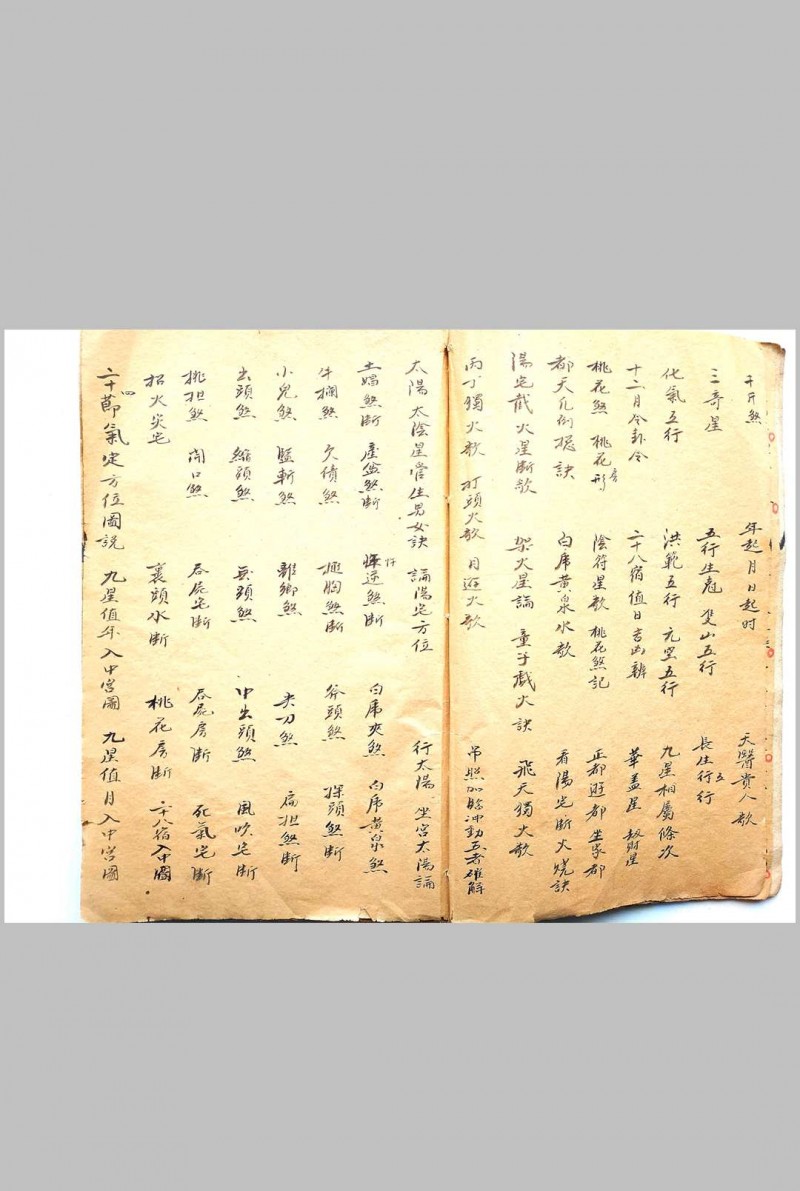 干支煞 年起月日起时 天醫貴人歌
三奇星 五行生尅 雙山五行 長生五行
化氣五行 洪範五行 元空五行 九星相屬條次
十二月令卦令 二十八宿值日吉凶辨 華盖星 劫财星
桃花煞 桃花形房 陰符星歌 桃花煞記 正都遊都坐家都
都天凡例总訣 白虎黄泉水歌 看陽宅断火燒訣
陽宅截火星断歌 架火星論 童子戲火訣 飛天獨火歌
丙丁獨火歌 打頭火歌 月遊火歌 吊照加临冲動五者確解
太陽太陰星管生男女訣 論陽宅方位 行太陽 坐宫太陽論
土煞断 產煞断 忤逆煞断 白虎夾煞 白虎黄泉煞
牛欄煞 欠债煞 搥胸煞断 斧頭煞 探頭煞断
小兒煞 監斬煞 離鄉煞 尖刀煞 扁担煞断
出頭煞 縮頭煞 頭煞 中出頭煞 風吹宅断
挑担煞 開口煞 吞屍宅断 吞屍房断 死氣宅断
招火炎宅 裹頭水断 桃花房断 二十八宿入中圖
二十四節氣定方位圖説 九星值年入中宫圖 九星值月入中宫圖